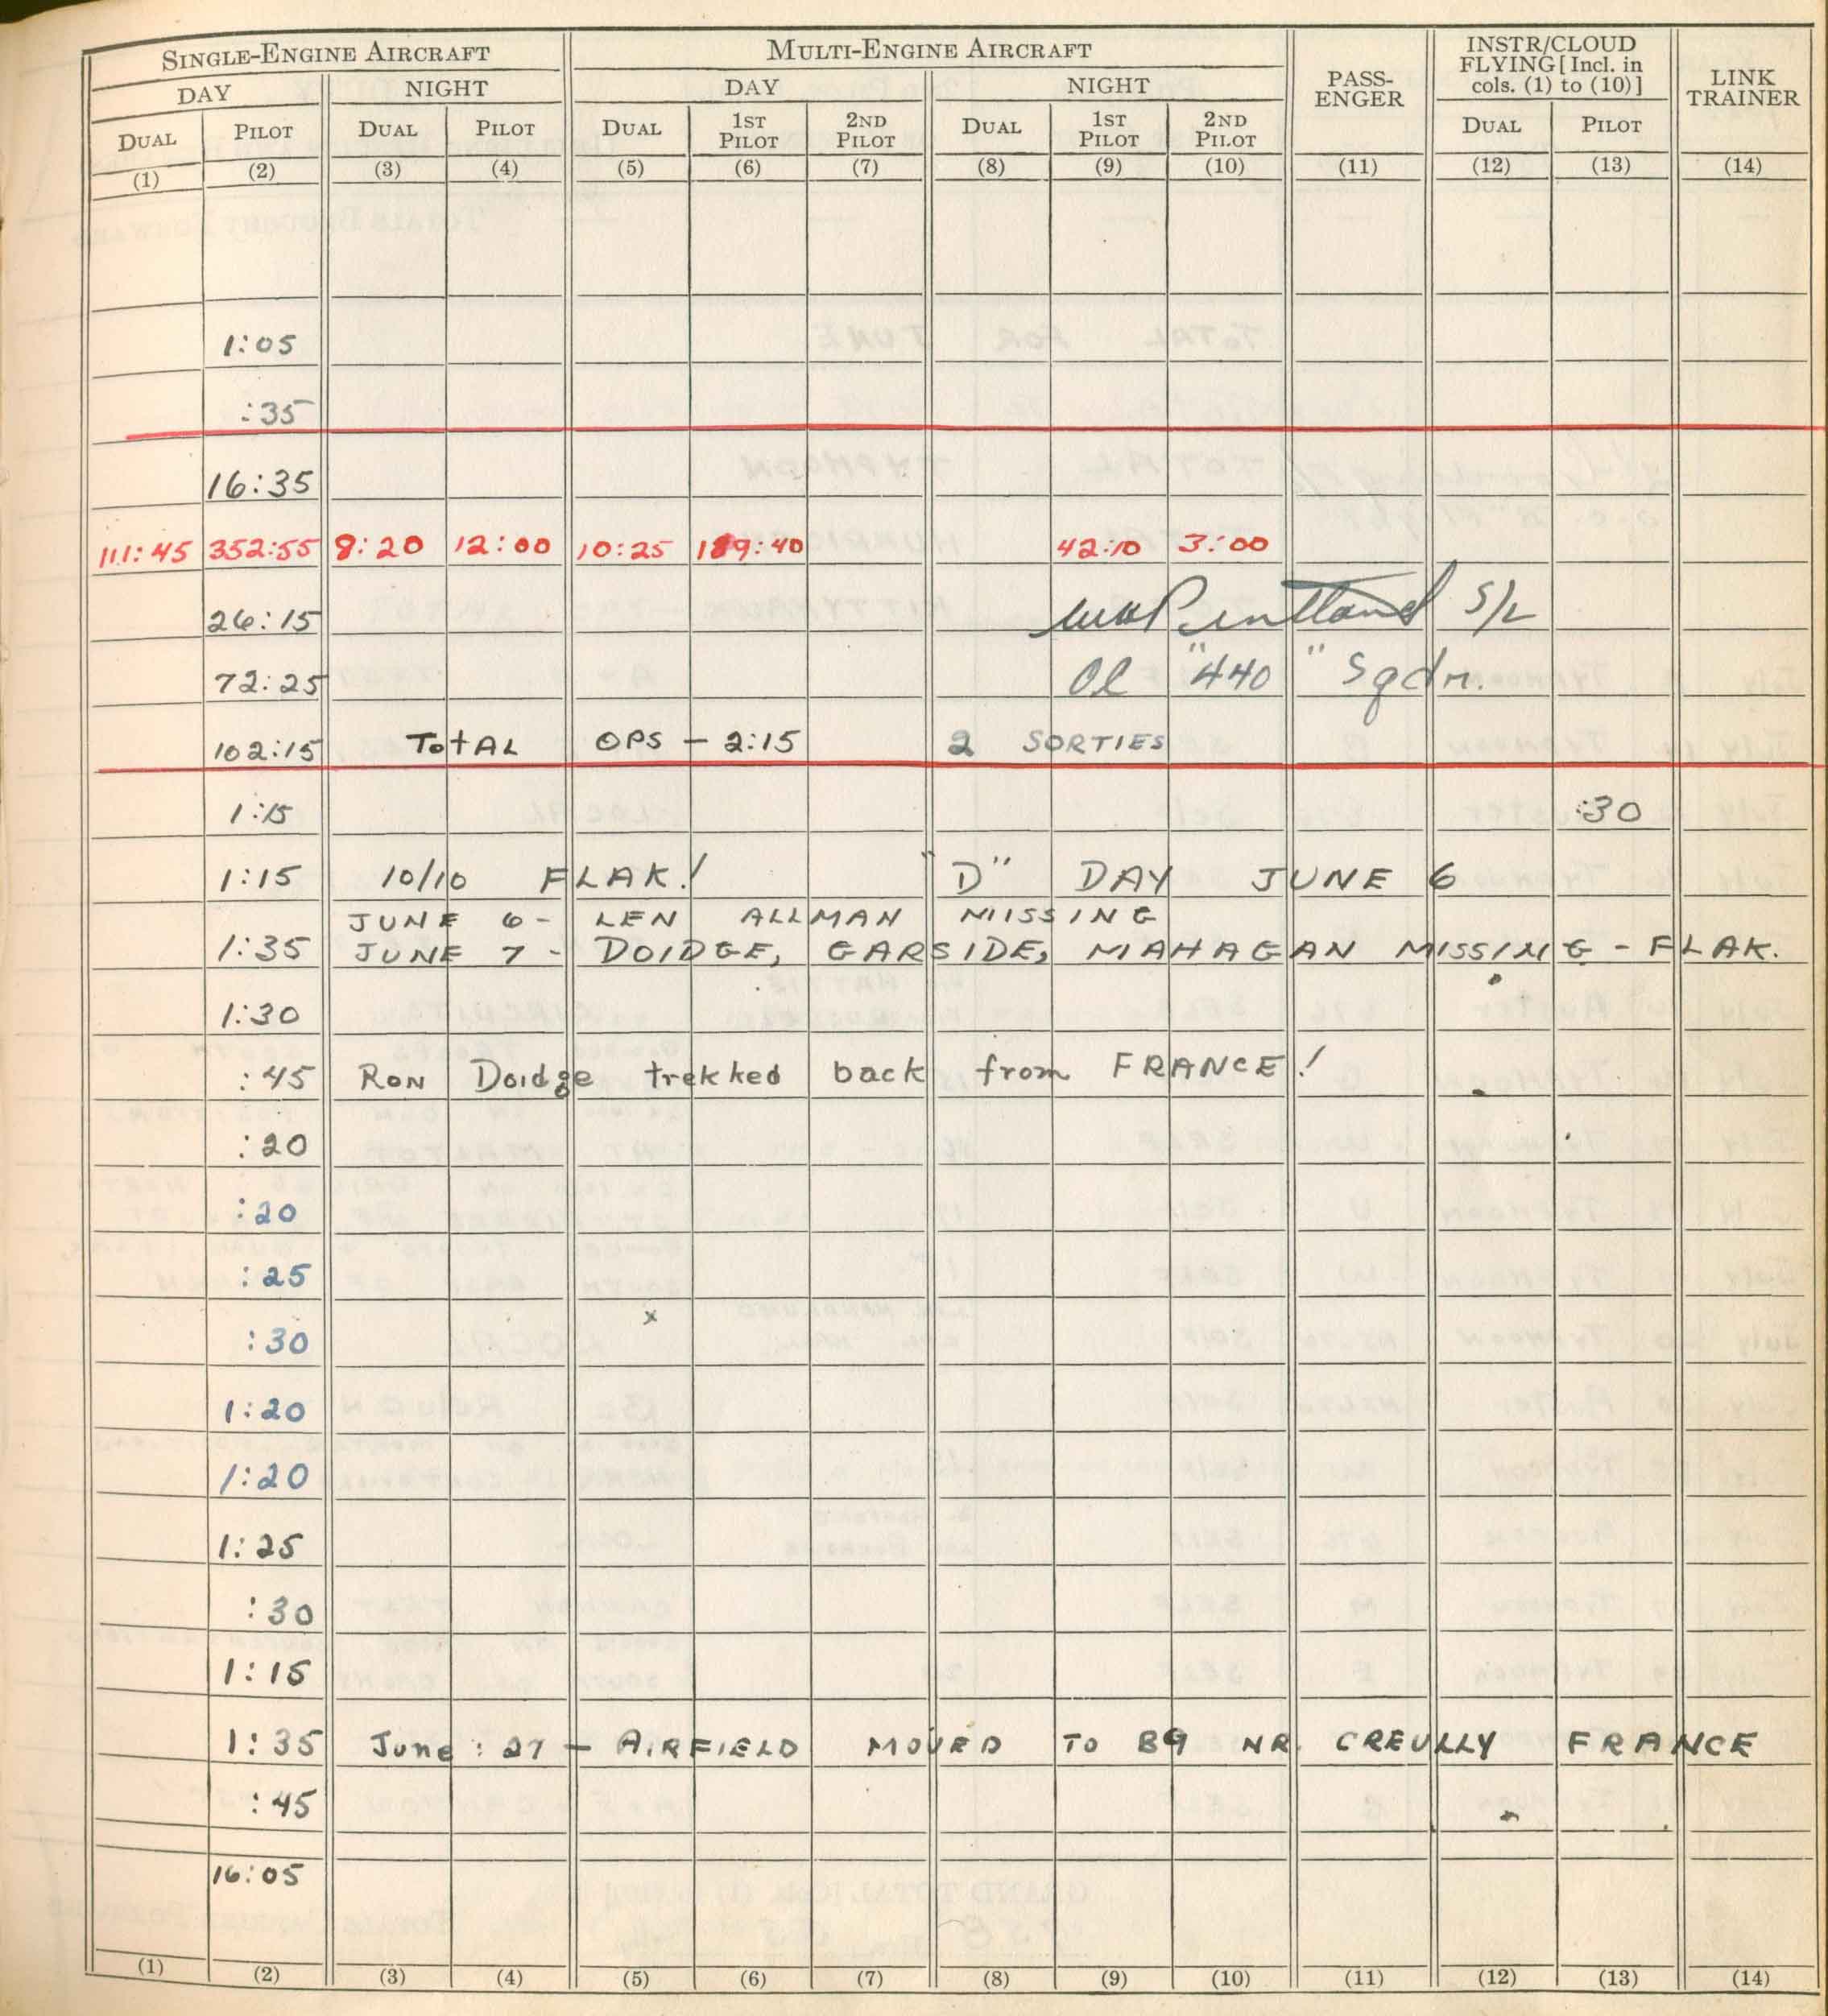 SINGLE-ENGINE AIRCRAFT MULTI-ENGINE AIRCRAFT PASS-ENGER INSTR/CLOUD FLYING [Incl. in cols. (1) to (10)] LINK TRAINER
DAY NIGHT DAY NIGHT
DUAL PILOT DUAL PILOT DUAL 1ST PILOT 2ND PILOT DUAL 1ST PILOT 2ND PILOT DUAL PILOT
(1) (2) (3) (4) (5) (6) (7) (8) (9) (10) (11) (12) (13) (14)
1:05
:35
16:35
111:45 352:55 8:20 12:00 10:25 189:40 42:10 3:00
26:15 Pentland S/L
72:25 OC "440" Sqdn.
102:15 TOTAL OPS - 2:15 2 SORTIES
1:15 :30
1:15 10/10 FLAK! "D" DAY JUNE 6
JUNE 6 - LEN ALLMAN MISSING
1:35 JUNE 7 - DOIDGE, GARSIDE, MAHAGAN MISSING - FLAK.
1:30
:45 RON Doidge trekked back from FRANCE!
:20
:20
:25
x
:30
1:20
1:20
1:25
:30
1:15
1:35 June: 27 - AIRFIELD MOVED TO B9 NR. CREULLY FRANCE
:45
16:05
(1) (2) (3) (4) (5) (6) (7) (8) (9) (10) (11) (12) (13) (14)